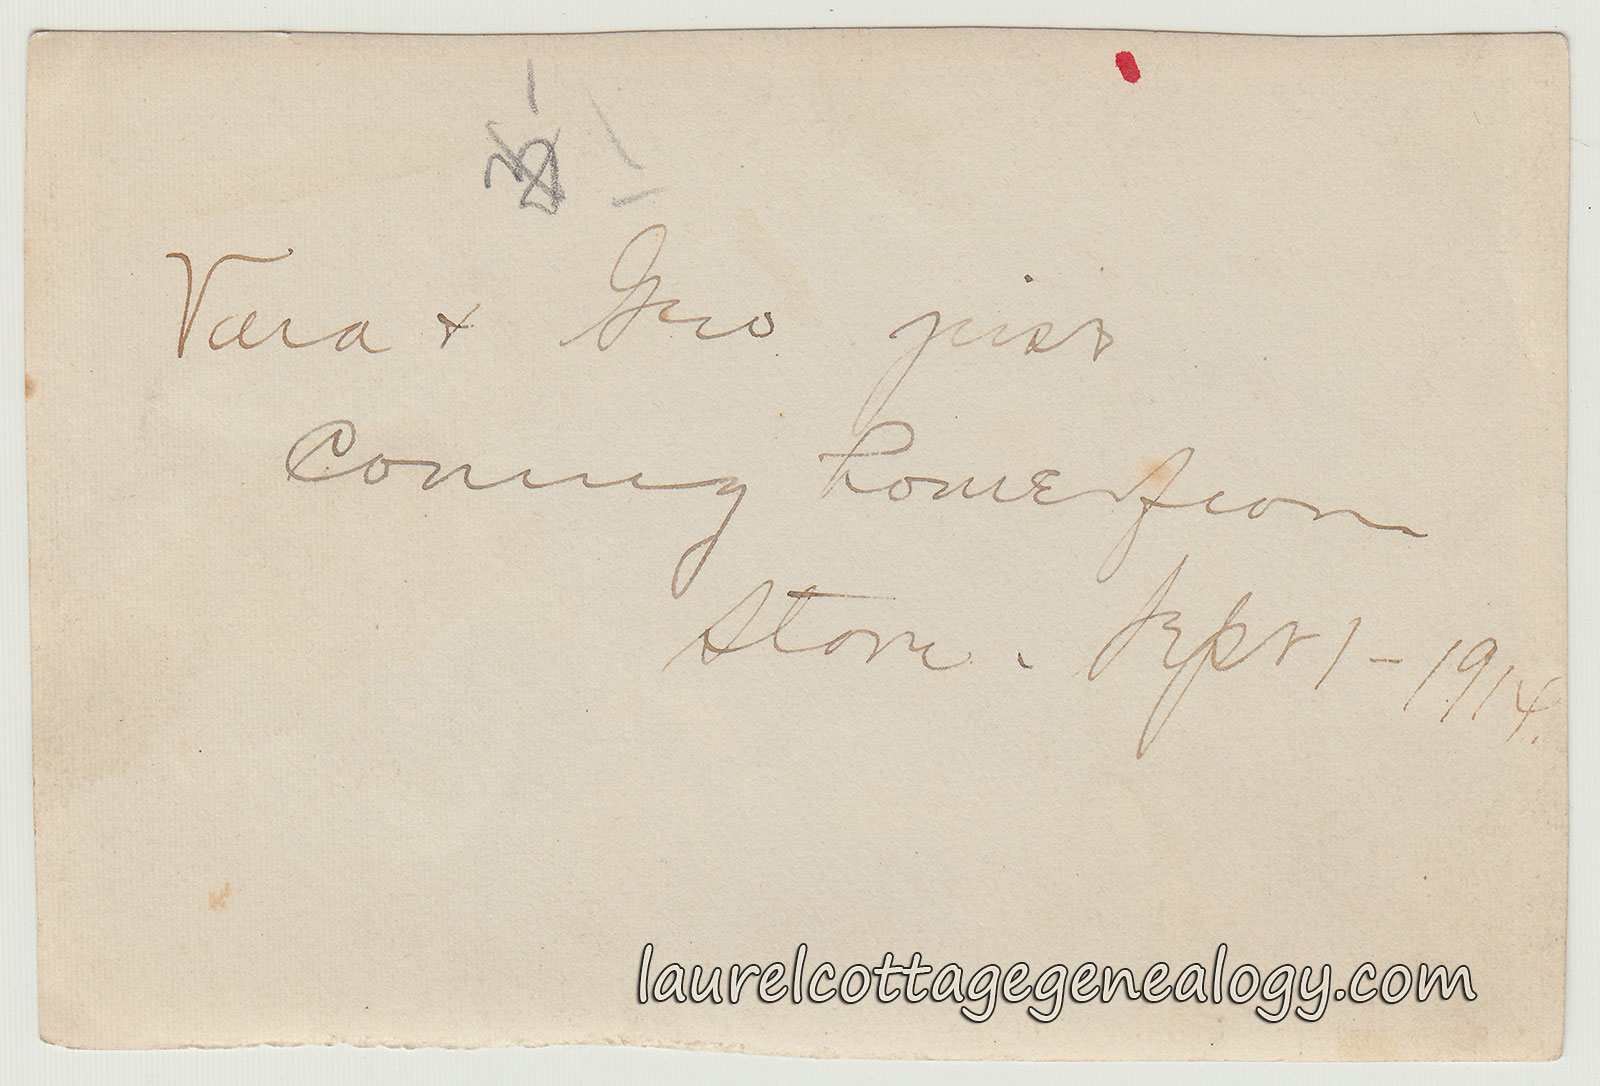 Vera + Geo just
Coming home from
store. Sept 1 - 1914.
laurelcottagegenealogy.com